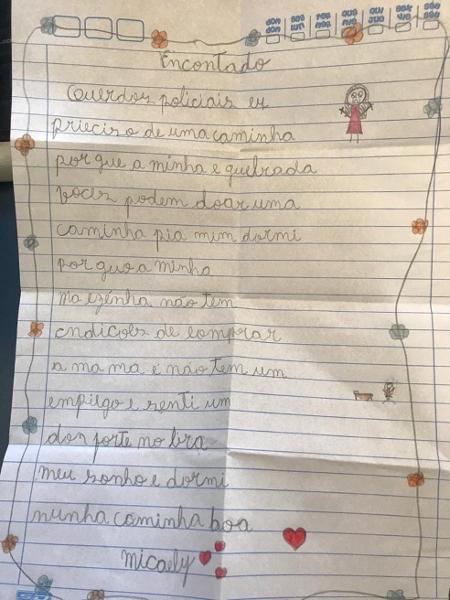 dom dom seg lun ter mar qua mie qui jue sex vie sáb sáb
Encontado
Querdos policiais eu
prieciso de uma caminha
por que a minha e quebrada
voces podem doar uma
caminha pia mim dormi
por que a minha
maezinha não tem
cndicoes de comprar
a ma ma e não tem um
empilgo e senti um
dor forte no
meu sonho e dormi
nunha caminha boa
micaely